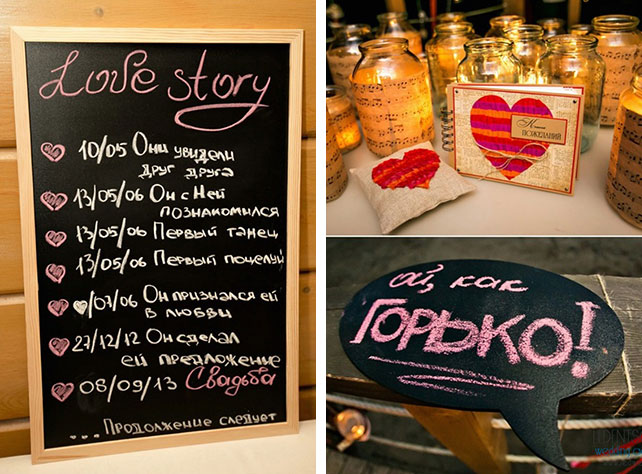 Love story
10/05 Они увидели
друг друга
13/05/06 Он с Ней
познакомился
13/05/06 Первый танец
13/05/06 Первый поцелуй
/07/06 Он признался ей
в любви
27/12/12 Он сделал
ей предложение
08/09/13 Свадьба
...Продолжение следует
Книга
ПОЖЕЛАНИЙ
ой, как
Горько!